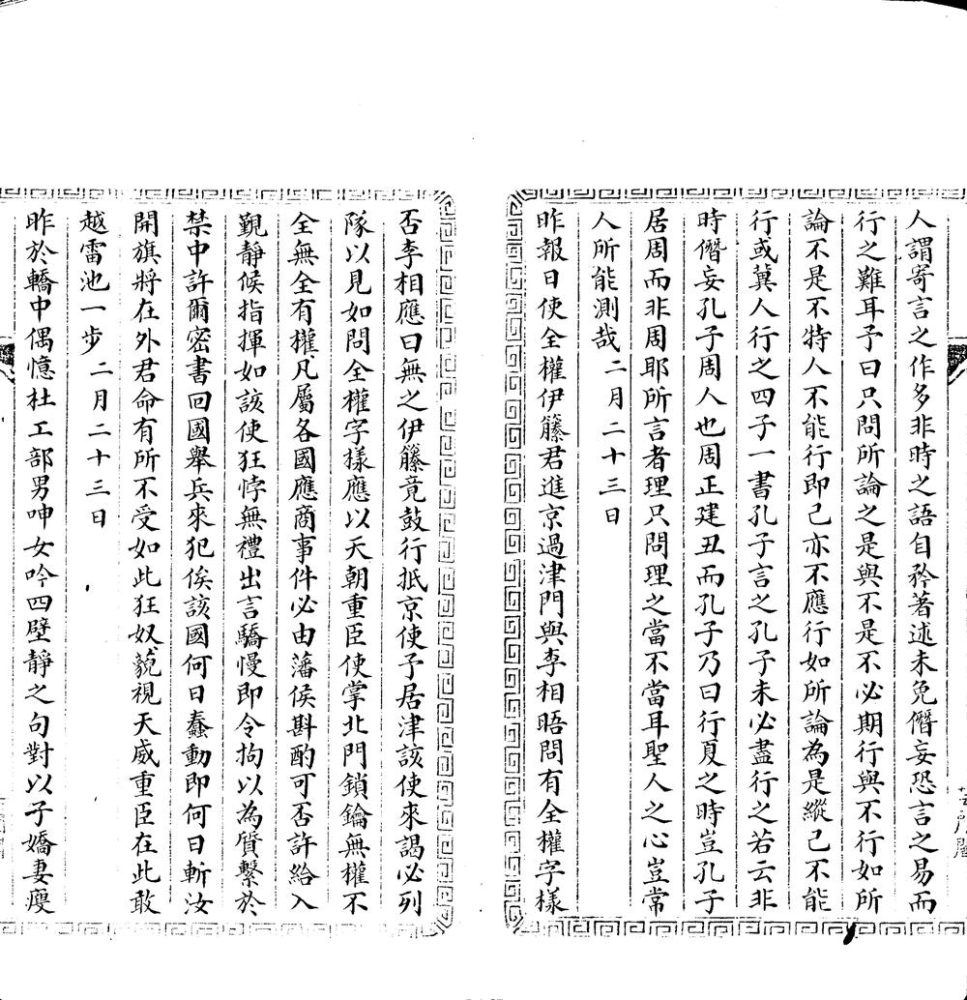 人謂寄言之作多非時之語自矜著述未免僭妄恐言之易而
行之難耳子曰只問所論之是與不是不必期行與不行如所
論不是不特人不能行即己亦不應行如所論為是縱己不能
行或冀人行之四子一書孔子言之孔子未必盡行之若云非
時僭妄孔子周人也周正建丑而孔子乃曰行夏之時豈孔子
居周而非周耶所言者理只問理之當不當耳聖人之心豈常
人所能測哉二月二十三日
昨報日使全權伊籐君進京過津門與李相晤問有全權字樣
否李相應曰無之伊籐竟鼓行抵京使予居津該使來謁必列
隊以見如問全權字樣應以天朝重臣使掌北門鎖鑰無權不
全無全有權凡屬各國應商事件必由藩侯斟酌可否許給入
覲靜候指揮如該使狂悖無禮出言驕慢即令拘以為質繫於
禁中許爾密書回國舉兵來犯俟該國何日蠢動即何日斬汝
開旗將在外君命有所不受如此狂奴藐視天威重臣在此敢
越雷池一步二月二十三日
昨於轎中偶憶杜工部男呻女吟四壁靜之句對以子嬌妻瘦